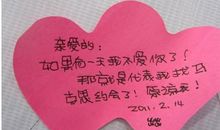 亲爱的：
如果有一天我不爱你了！
那就是代表我找马
肯恩约会了！原谅我！
2011.2.14